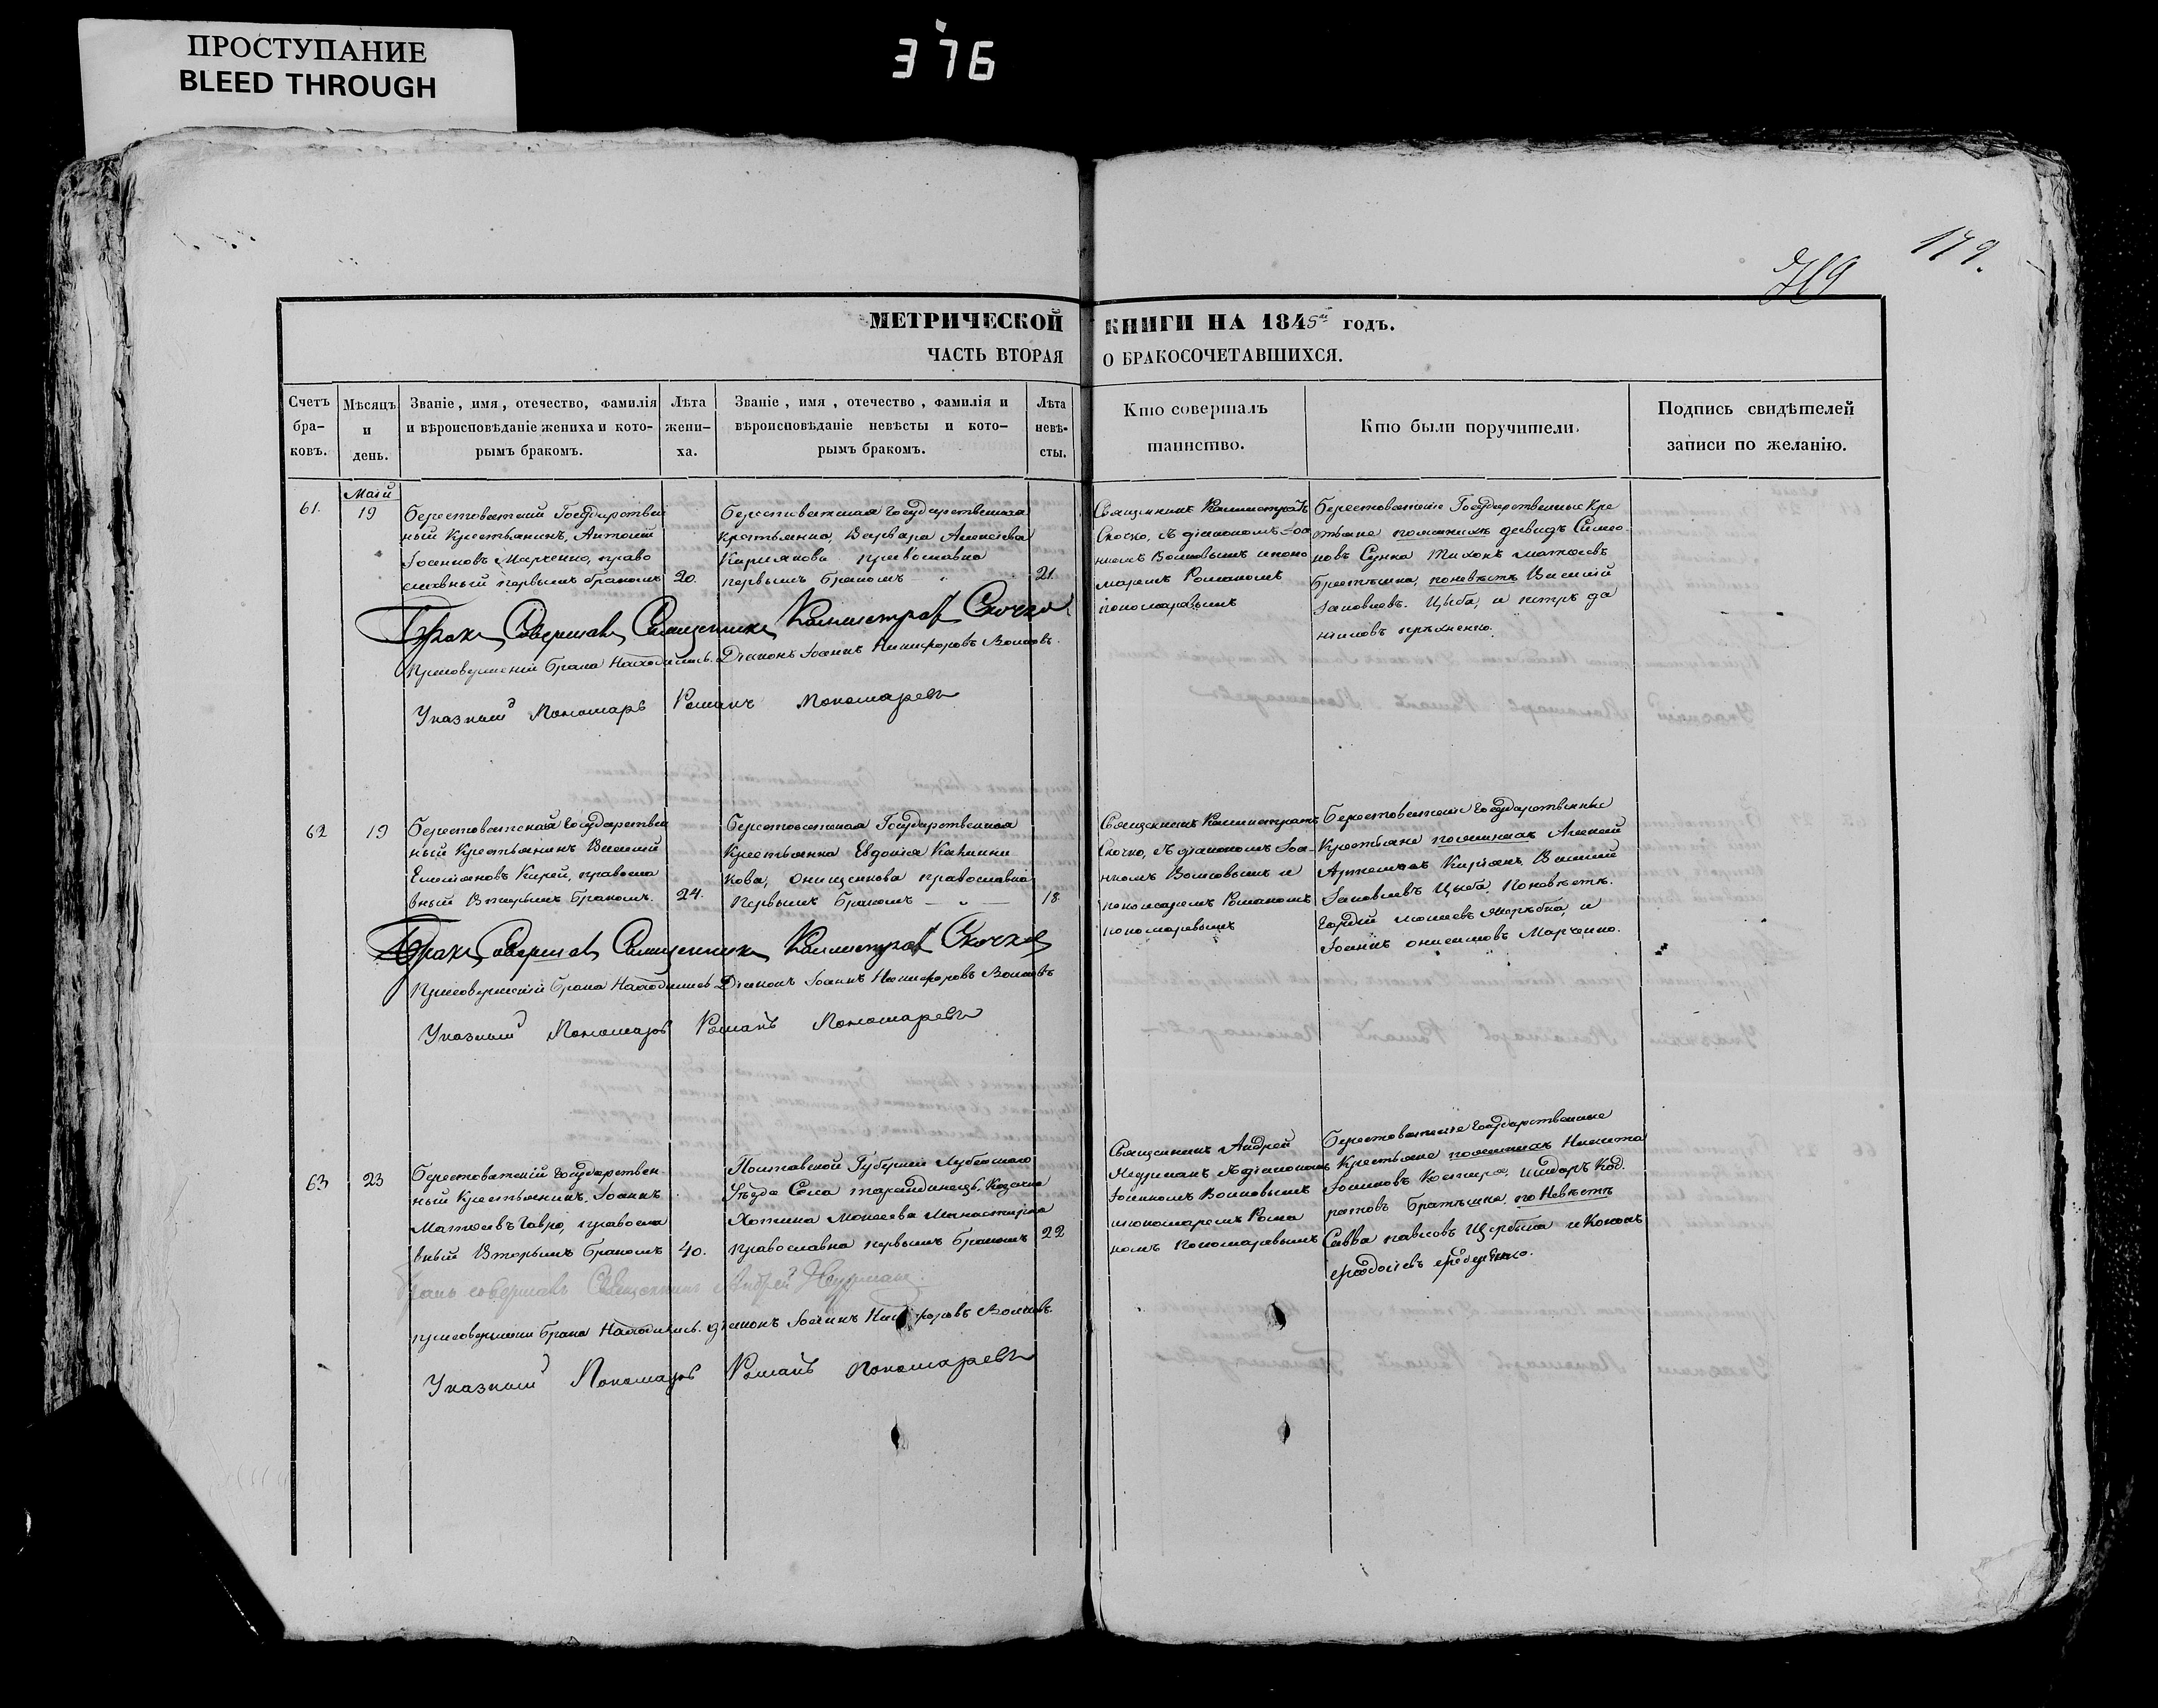 ПРОСТУПАНИЕ
BLEED THROUGH
376
179.
МЕТРИЧЕСКОЙ КНИГИ НА 1845й годъ.
ЧАСТЬ ВТОРАЯ О БРАКОСОЧЕТАВШИХСЯ.
Счетъ
бра-
ковъ.
Мѣсяцъ
и
день.
Званіе, имя, отечество, фамилія
и вѣроисповѣданіе жениха и кото-
рымъ бракомъ.
Лѣта
жени-
ха.
Званіе, имя, отечество, фамилія и
вѣроисповѣданіе невѣсты и кото-
рымъ бракомъ.
Лѣта
невѣ-
сты.
Кто совершалъ
таинство.
Кто были поручители.
Подпись свидѣтелей
записи по желанію.
61.
Маій
19
Берестоватскій Государствен
ный Крестьянинъ, Антоній
Марченко, право
славный первымъ бракомъ
20.
Берестоватская Государственная
крестьянка, Варвара Алексіева
православна
первымъ бракомъ
21.
Священникъ Каллистратъ
Скочко, съ діакономъ Іоа
нномъ Волковымъ и поно
маремъ Романомъ
пономаревымъ
Берестоватскіе Государственные Кре
стьяне пожениху Давидъ Симео
новъ Сунка Тихонъ Матѳеевъ
Братъшка, поневѣстѣ Василій
Іаковлевъ. Цыба, и петръ да
ніиловъ
Бракъ Совершалъ Священникъ Каллистратъ Скочко
Присовершеніи брака Находились. Діаконъ Іоаннъ Никифоровъ Волковъ.
Указный Пономарь Романъ Пономаревъ
62
19
Берестоватской Государствен
ный Крестьянинъ Василій
Емеліяновъ Кирей, правосла
вный Вторымъ бракомъ.
24.
Берестоватская Государственная
Крестьянка Евдокія Калинни
кова, Онищенкова православна
Первымъ бракомъ — „ —
18
Священникъ Каллистратъ
Скочко, съ діакономъ Іоа-
нномъ Волковымъ и
пономаремъ Романомъ
пономаревымъ
Берестоватскіе Государственные
Крестьяне пожениху Алексій
Артемьевъ Кирьянъ, Василій
Іаковлевъ Цыба. Поневѣстѣ.
Гордій Моисеевъ и
Іоаннъ онисимовъ Марченко.
Бракъ Совершалъ Священникъ Каллистратъ Скочко
Присовершеніи брака Находились Діаконъ Іоаннъ Никифоровъ Волковъ
Указный Пономарь Романъ Пономаревъ
63
23
Берестоватскій Государствен
ный Крестьянинъ, Іоаннъ
Матѳеевъ Гавро, правосла
вный Вторымъ бракомъ
40.
Полтавской Губерніи Лубенскаго
Уѣзда Села Казачка
Хотина Моисеева
православна первымъ бракомъ
22
Священникъ Андрей
съ діакономъ
Іоанномъ Волковымъ
ипономаремъ Рома
номъ Пономаревымъ
Берестоватскіе Государственные
Крестьяне пожениху Никита
Исидоръ Код.
ратовъ Братъшка. по Невѣстѣ
Савва павловъ Щербина и Кононъ
Бракъ совершалъ Священникъ Андрей
присовершеніи брака Находились. діаконъ Іоаннъ Никифоровъ Волковъ
Указный Пономарь Романъ Пономаревъ